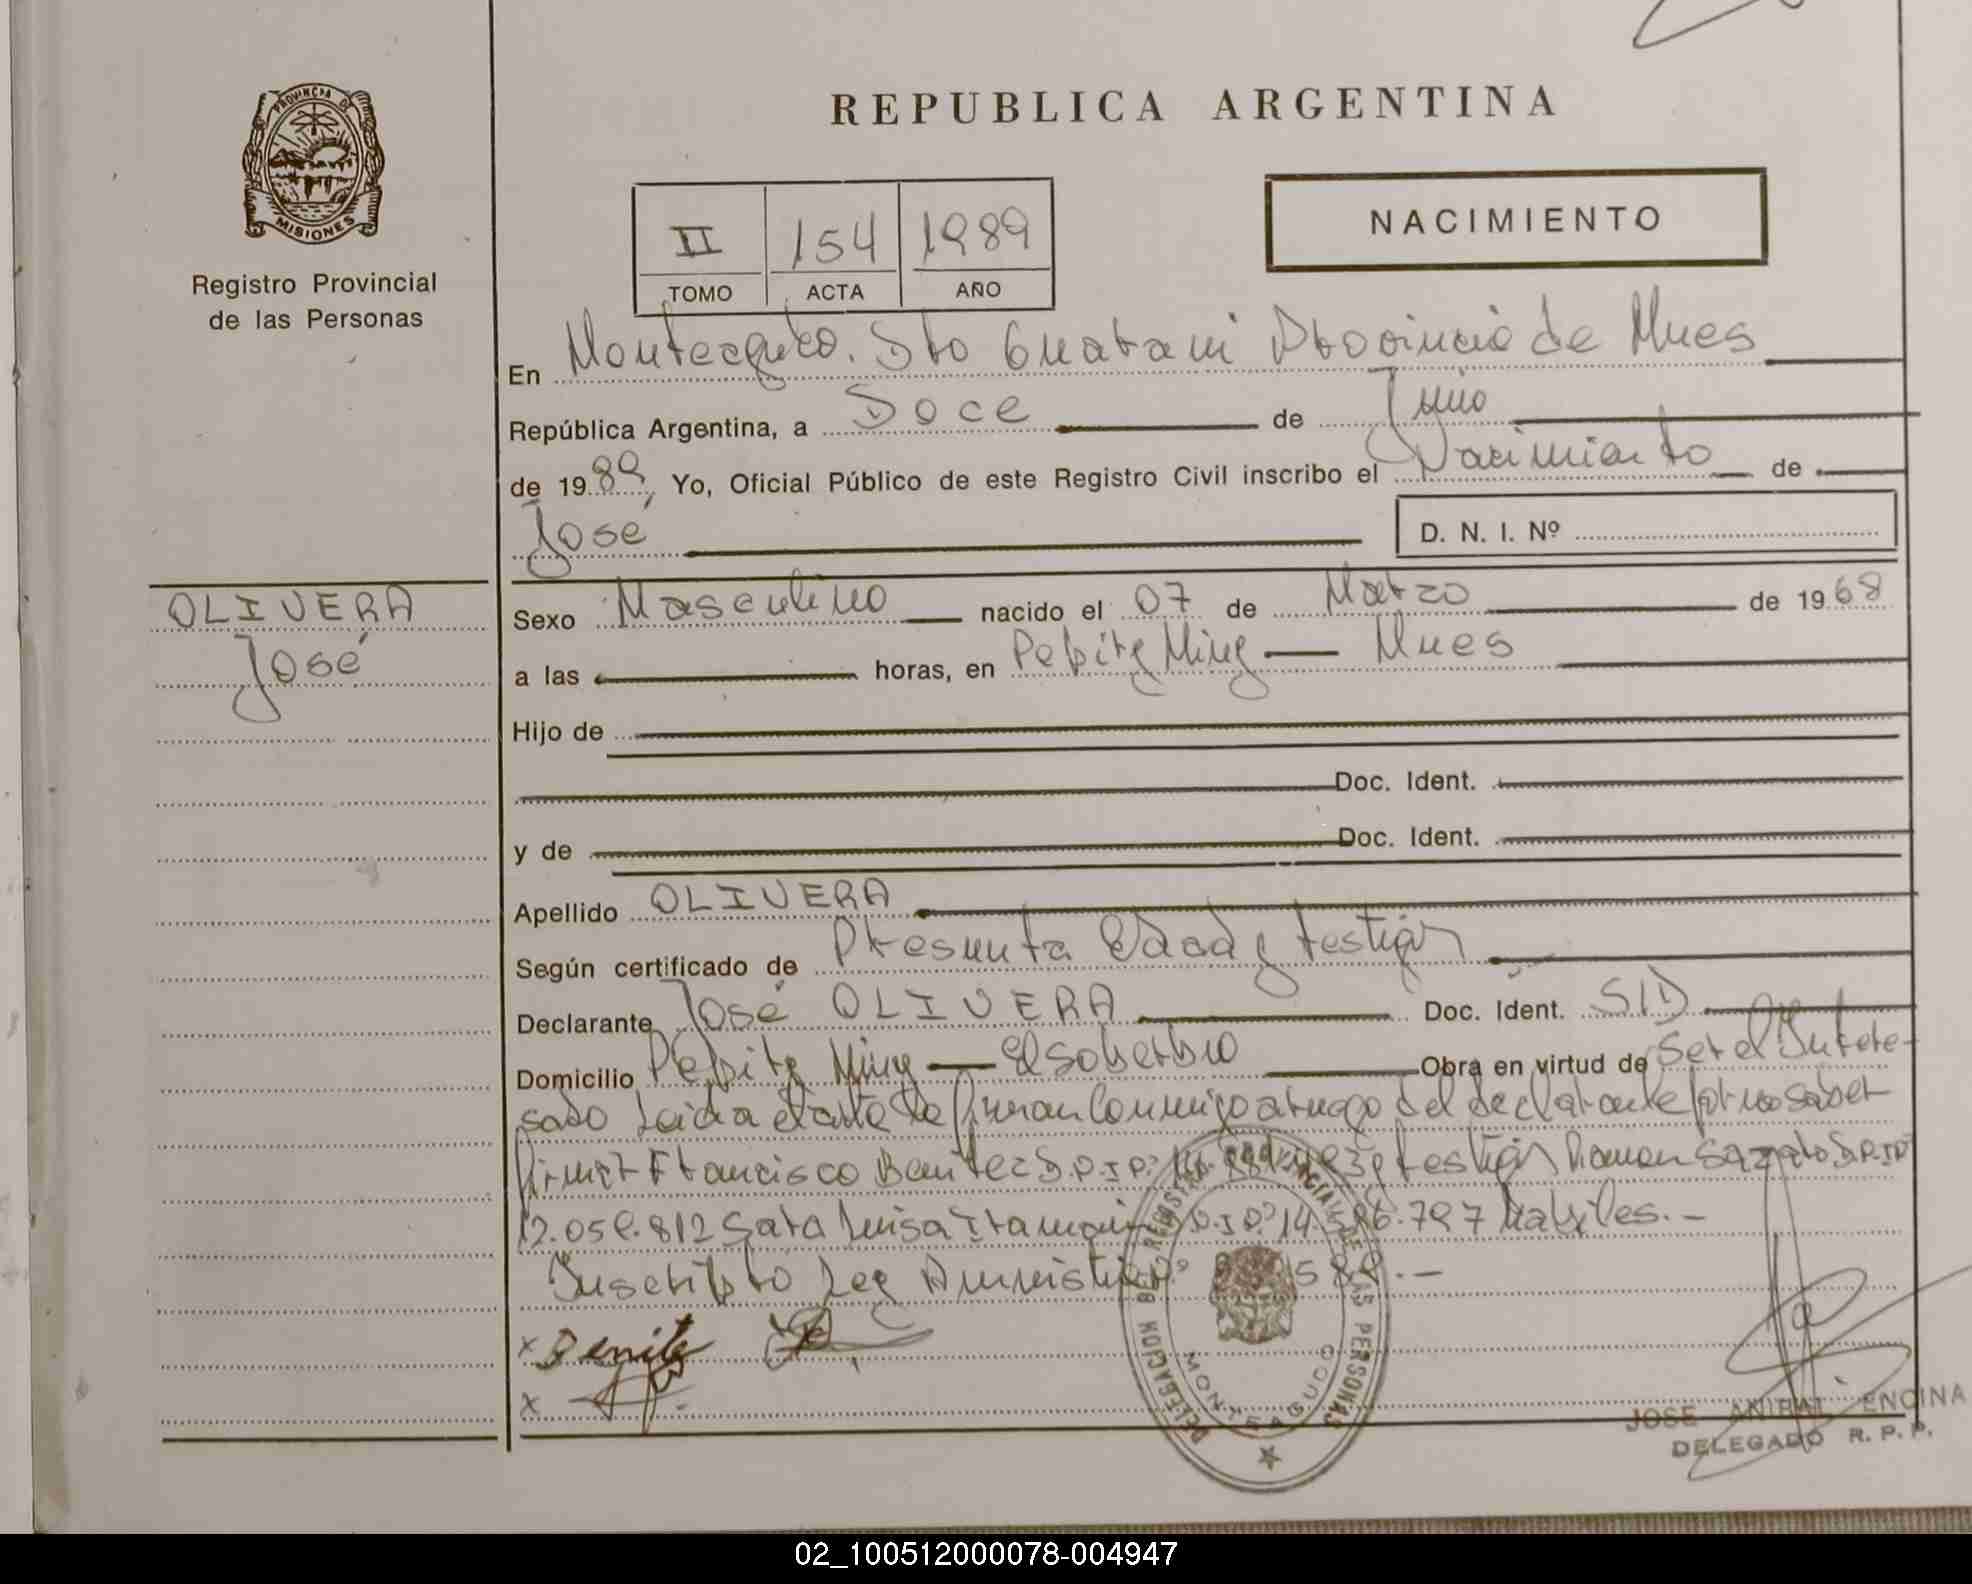 REPUBLICA ARGENTINA
PROVINCIA DE
MISIONES
Registro Provincial
de las Personas
II 154 1989
TOMO ACTA AÑO
NACIMIENTO
En Monteagudo. Dto Guarani Provincia de Mnes
República Argentina, a Doce de Junio
de 1989, Yo, Oficial Público de este Registro Civil inscribo el Nacimiento de
José
D. N. I. Nº
OLIVERA
José
Sexo Masculino nacido el 07 de Marzo de 1968
a las horas, en Pepiry Miny — Mnes
Hijo de
Doc. Ident.
y de Doc. Ident.
Apellido OLIVERA
Según certificado de Presunta Edad y testigos
Declarante José OLIVERA Doc. Ident. S/D
Domicilio Pepiry Miny — El Soberbio Obra en virtud de Ser el Intere-
sado Leida el acta la firman Conmigo a ruego del declarante por no saber
firmar Francisco Benitez D.N.I.Nº y testigos Ramon D.N.I.Nº
12.059.812 Sara Luisa D.N.I.Nº 14. .797 habiles.-
Inscripto Ley Amnistia Nº .-
x Benitez
x
DELEGACION DEL REGISTRO PROVINCIAL DE LAS PERSONAS
MONTEAGUDO
JOSE ANIBAL ENCINA
DELEGADO R. P. P.
02_100512000078-004947